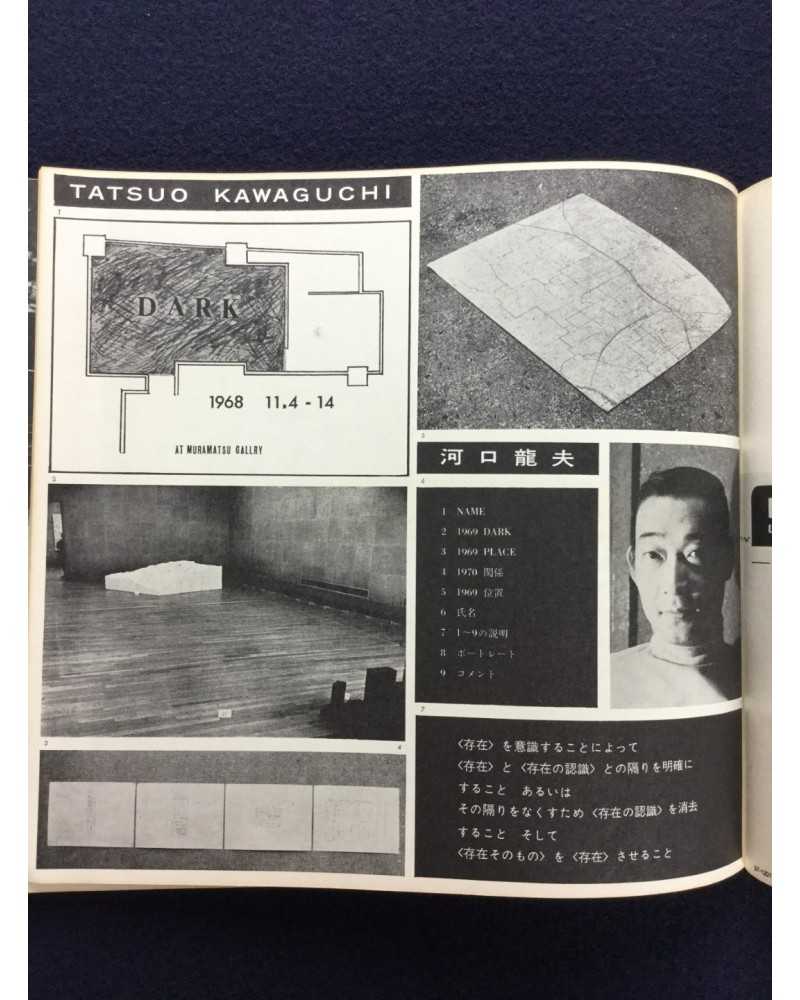 TATSUO KAWAGUCHI
1
DARK
1968 11.4 - 14
AT MURAMATSU GALLRY
河口龍夫
4
1 NAME
2 1969 DARK
3 1969 PLACE
4 1970 関係
5 1969 位置
6 氏名
7 1〜9の説明
8 ポートレート
9 コメント
7
〈存在〉を意識することによって
〈存在〉と〈存在の認識〉との隔りを明確に
すること あるいは
その隔りをなくすため〈存在の認識〉を消去
すること そして
〈存在そのもの〉を〈存在〉させること